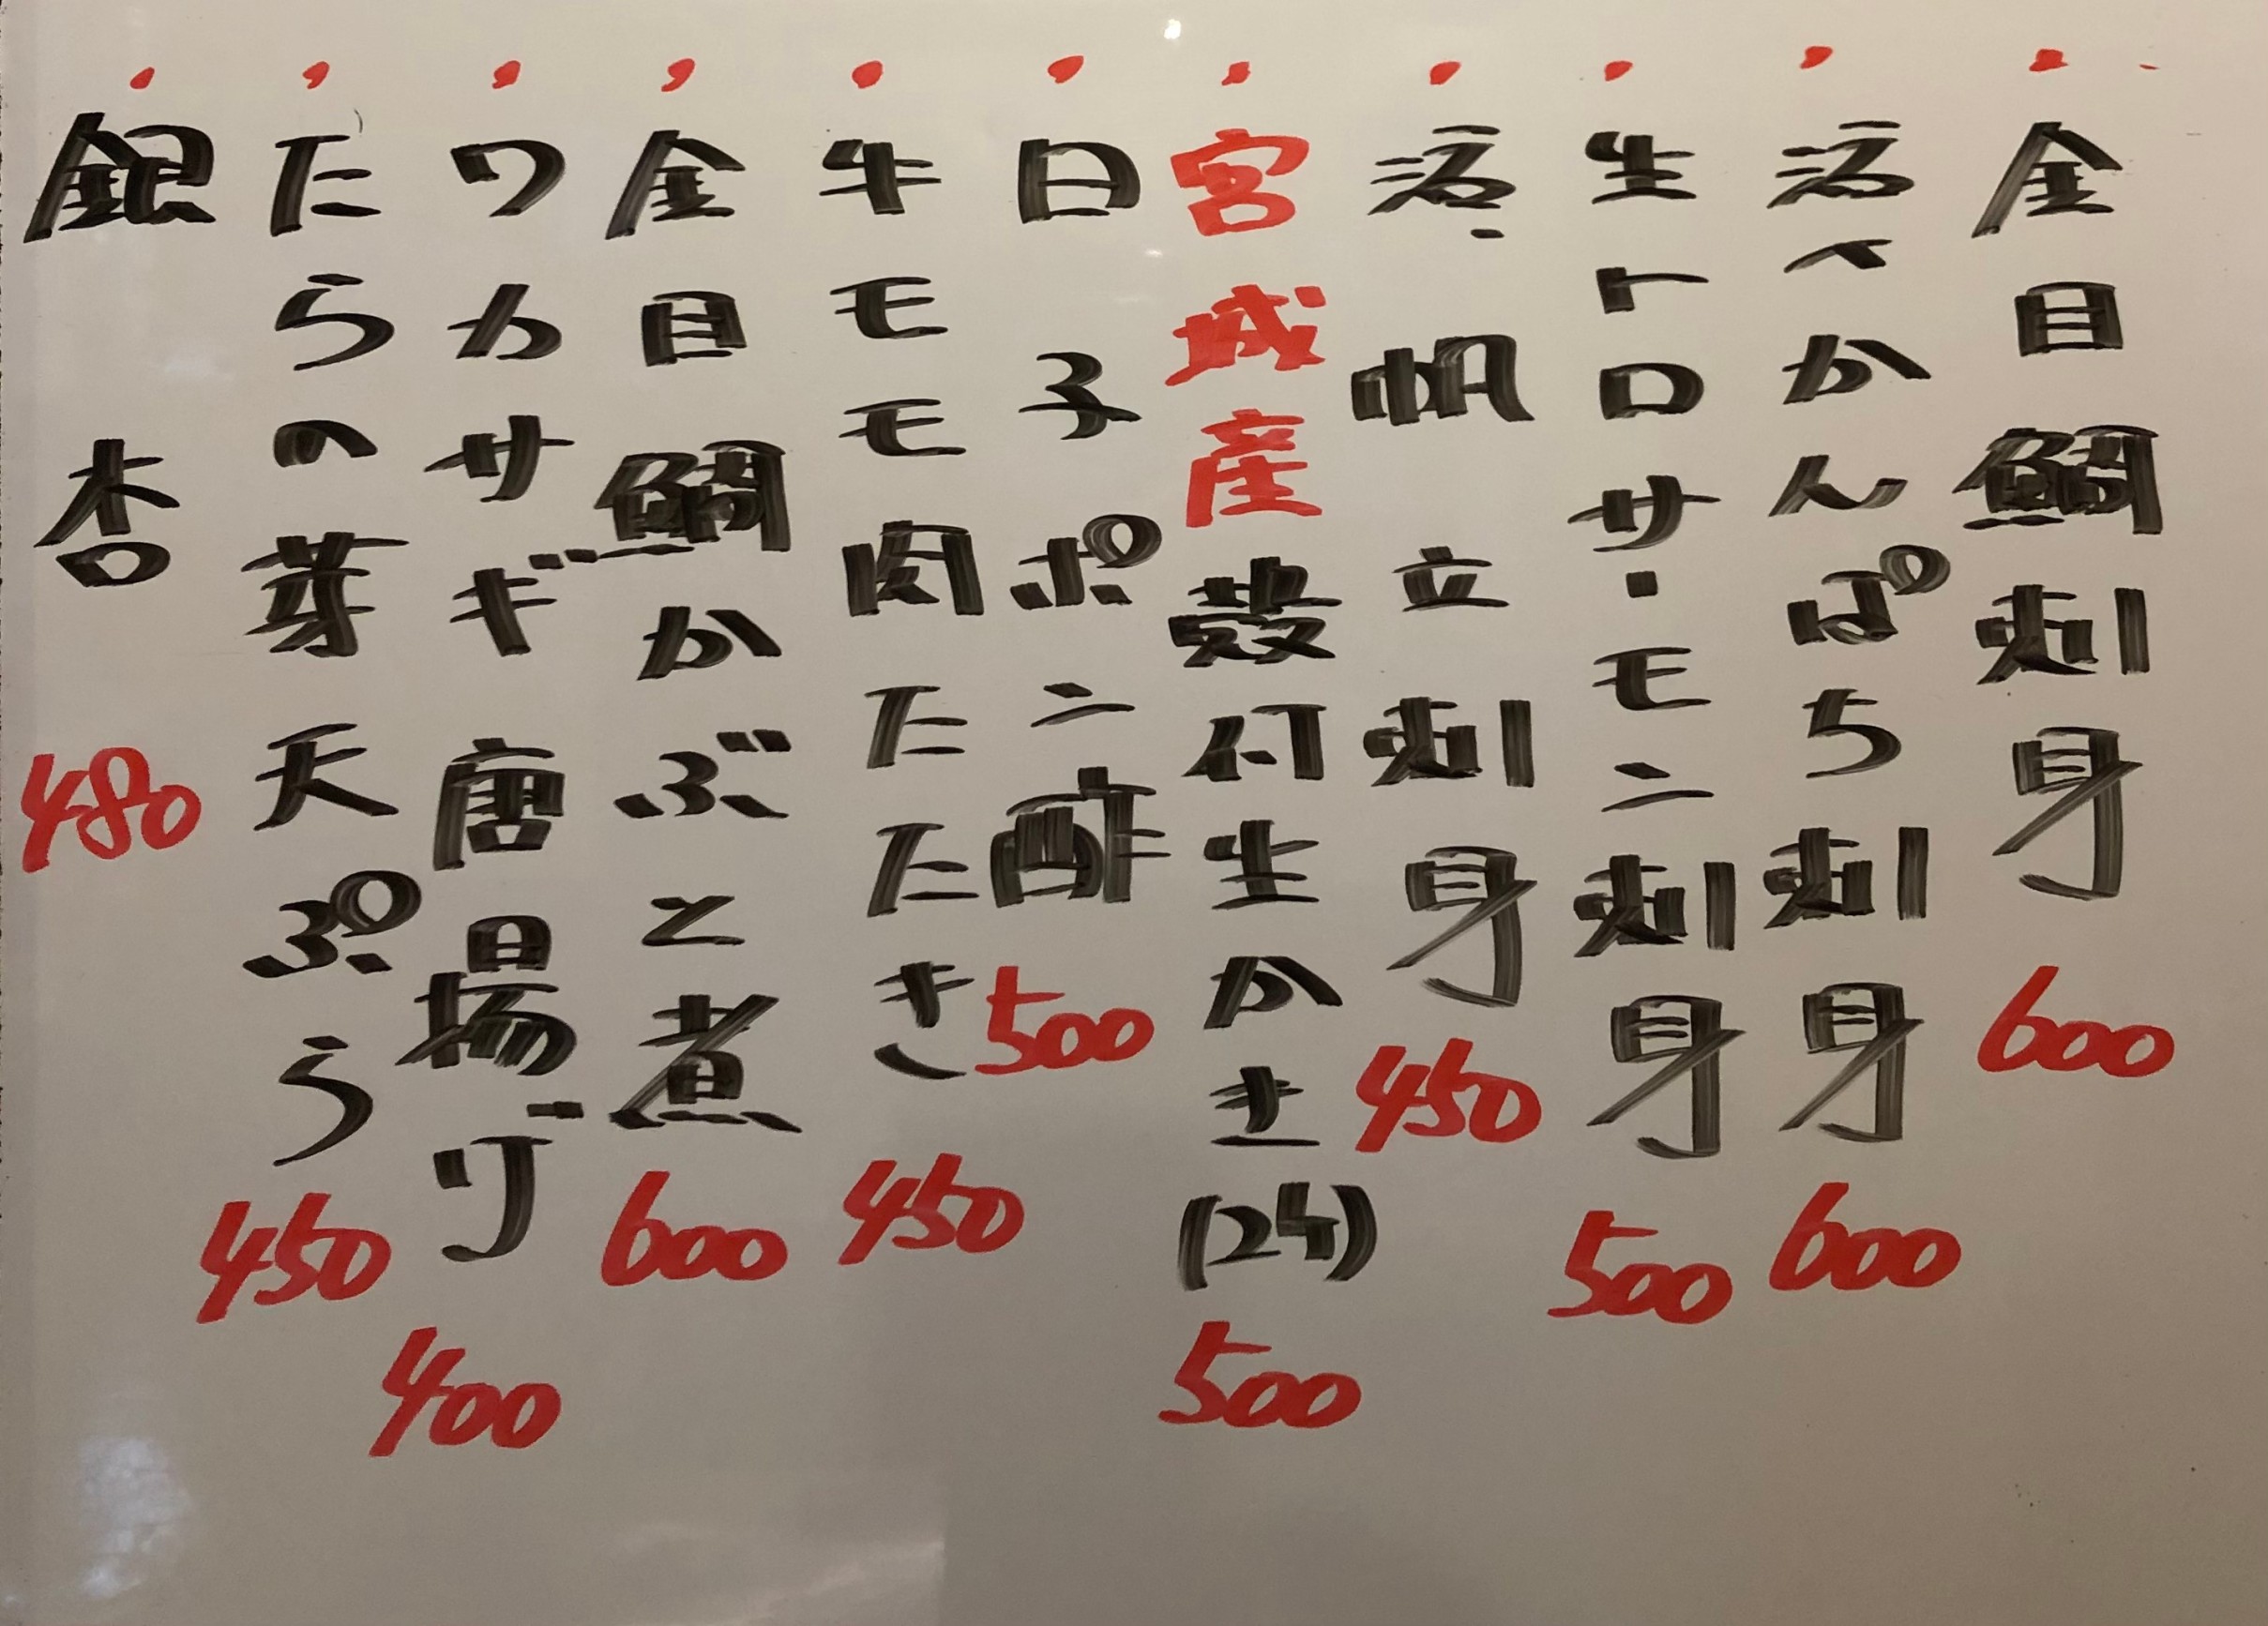 ・金目鯛刺身 600
・活〆かんぱち刺身 600
・生トロサーモン刺身 500
・活帆立刺身 450
・宮城産殻付生かき(2ケ) 500
・白子ポン酢 500
・牛モモ肉たたき 450
・金目鯛かぶと煮 600
・ワカサギ唐揚げ 400
・たらの芽天ぷら 450
・銀杏 480